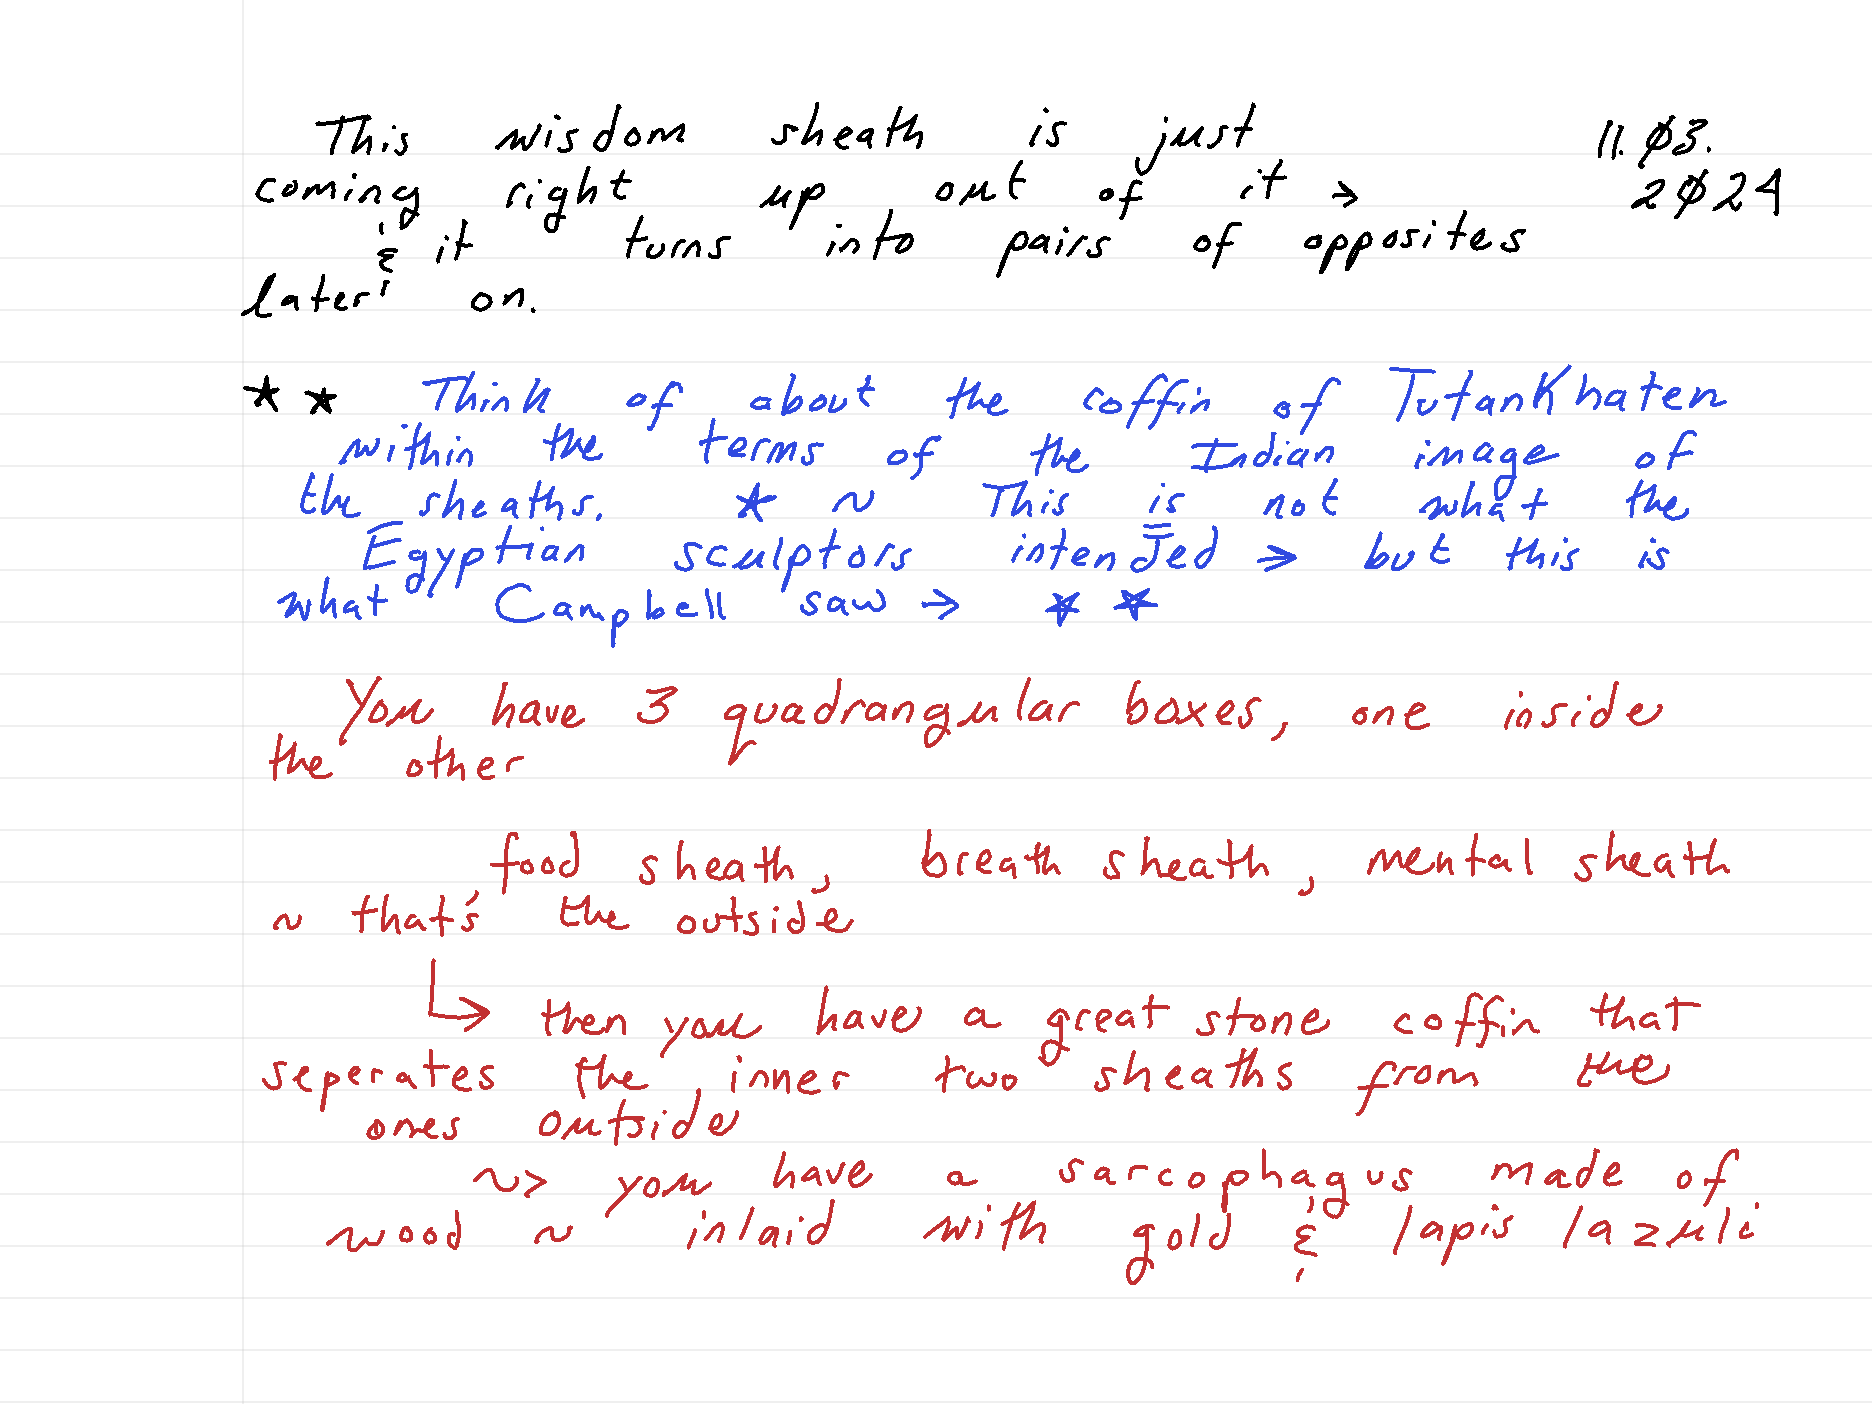 This wisdom sheath is just 11.Ø3.
coming right up out of it → 2Ø24
& it turns into pairs of opposites
later on.
★ ★ Think of about the coffin of TutanKhaten
within the terms of the Indian image of
the sheaths. ★ ~ This is not what the
Egyptian sculptors intended → but this is
what Campbell saw → ★ ★
You have 3 quadrangular boxes, one inside
the other
food sheath, breath sheath, mental sheath
~ that's the outside
↳ then you have a great stone coffin that
seperates the inner two sheaths from the
ones outside
~> you have a sarcophagus made of
wood ~ inlaid with gold & lapis lazuli